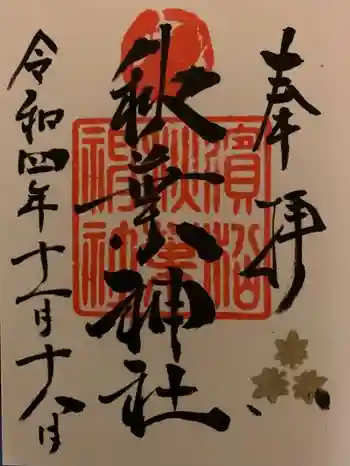 奉拝
濱松
秋葉
神社
秋葉神社
令和四年十一月十八日